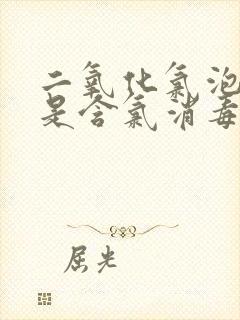 二氧化氯泡
是含氯消毒
屈光